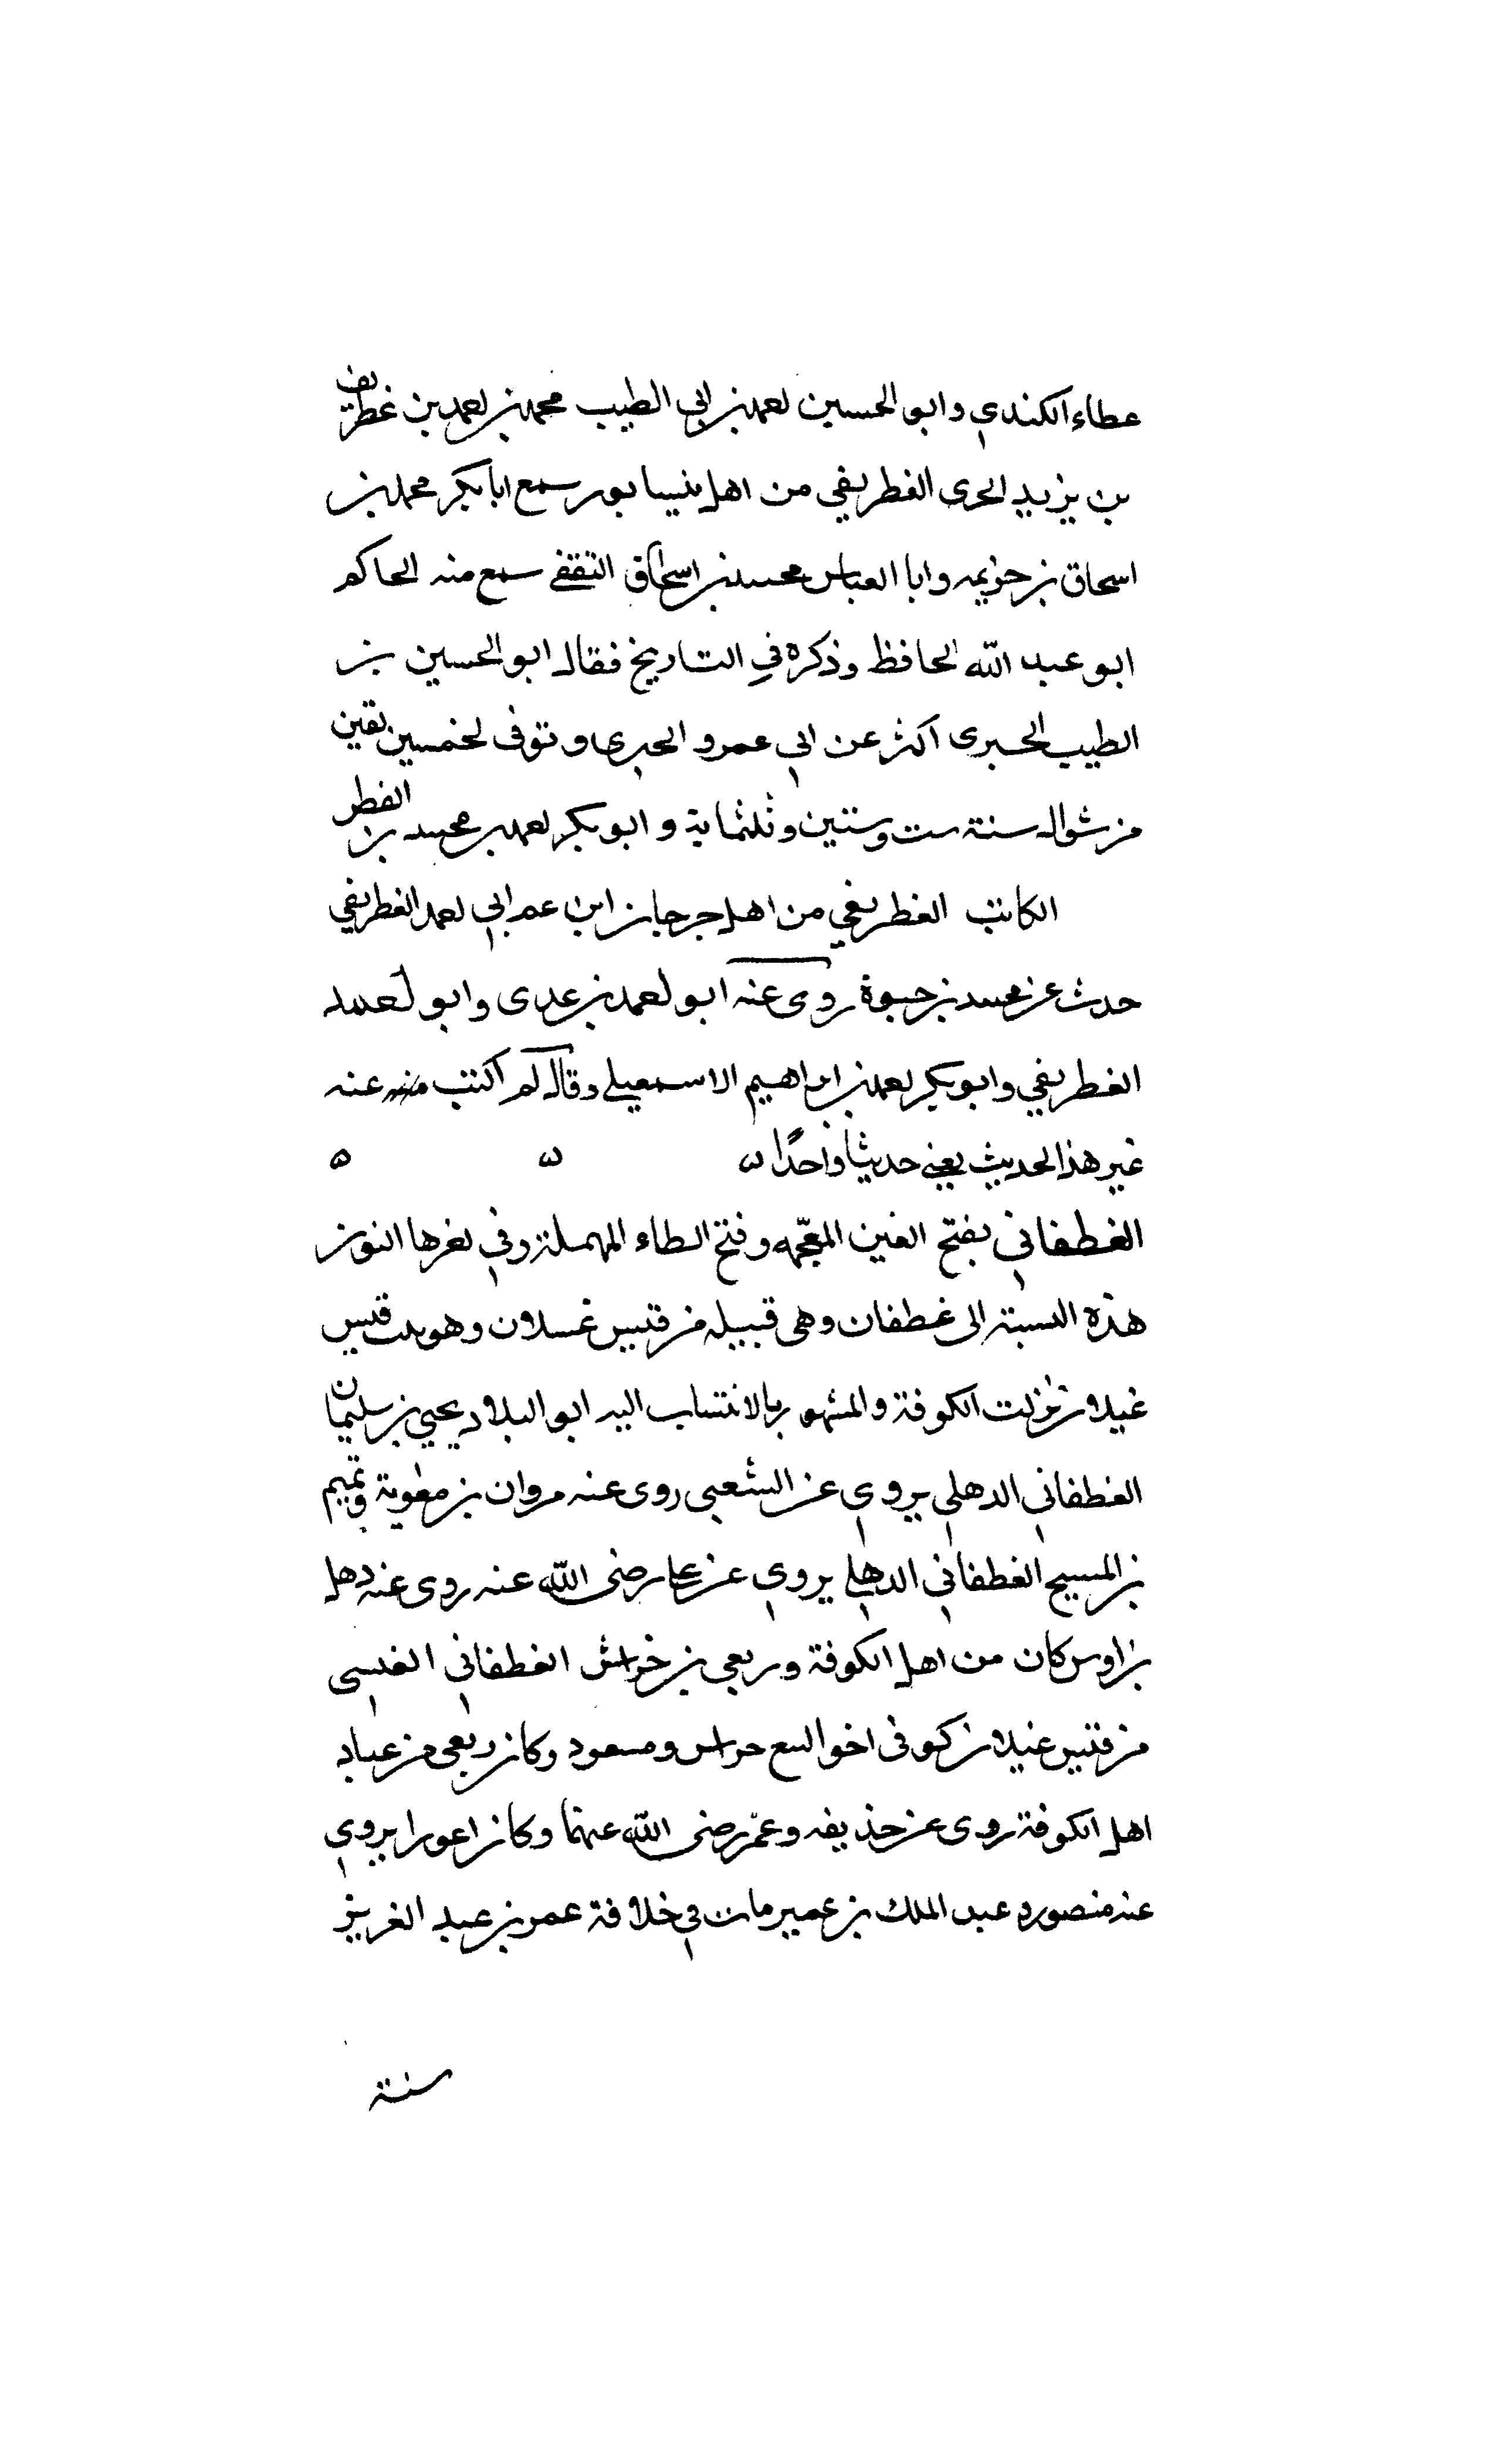 عطاء الكندي وابو الحسين احمد بن ابي الطيب محمد بن احمد بن غطريف
بن يزيد الحرى الغطريفي من اهل نيسابور سمع ابا بكر محمد بن
اسحاق بن خزيمه وابا العباس محمد بن اسحاق الثقفي سمع منه الحاكم
ابو عبد الله الحافظ وذكره في التاريخ فقال ابو الحسين بن
الطيب الحيرى اكثر عن ابي عمرو الحيرى وتوفى لخمسين بقين
من شوال سنة ست وستين وثلثماية وابو بكر احمد بن محمد بن الفطر
الكاتب الغطريفي من اهل جرجان ابن عم ابي احمد الغطريفي
حدث عن محمد بن حيوة روى عنه ابو احمد بن عدى وابو احمد
الغطريفي وابو بكر احمد بن ابراهيم الاسمعيلي وقال لم اكتب عنه
غير هذا الحديث يعني حديثا واحدًا ه ه ه
الغطفاني بفتح الغين المعجمه وفتح الطاء المهملة وفي اخرها النون
هذه النسبة الى غطفان وهى قبيله من قيس غسلان وهو قيس
غيلان نزلت الكوفة والمشهور بالانتساب اليه ابو البلاد يحيي بن سليمان
الغطفاني الدهلي يروى عن الشعبي روى عنه مروان بن معوية وتميم
بن المسيح الغطفاني الدهلي يروي عن على رضى الله عنه روى عنه دهل
بن اوس كان من اهل الكوفة وربعي بن خراش الغطفاني الغبسى
من قيس غيلان كوفى اخو الربيع حراس ومسعود وكان ربعى من عباد
اهل الكوفة روى عن حذيفه وعمر رضى الله عنهما وكان اعورا يروي
عنه منصور وعبد الملك بن عمير مات في خلافة عمر بن عبد الغريز
سنة